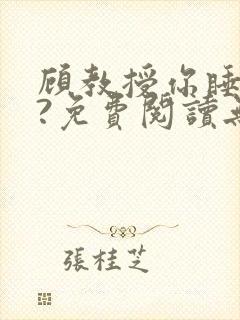 顧教授你睡
?免費閱讀
張桂芝